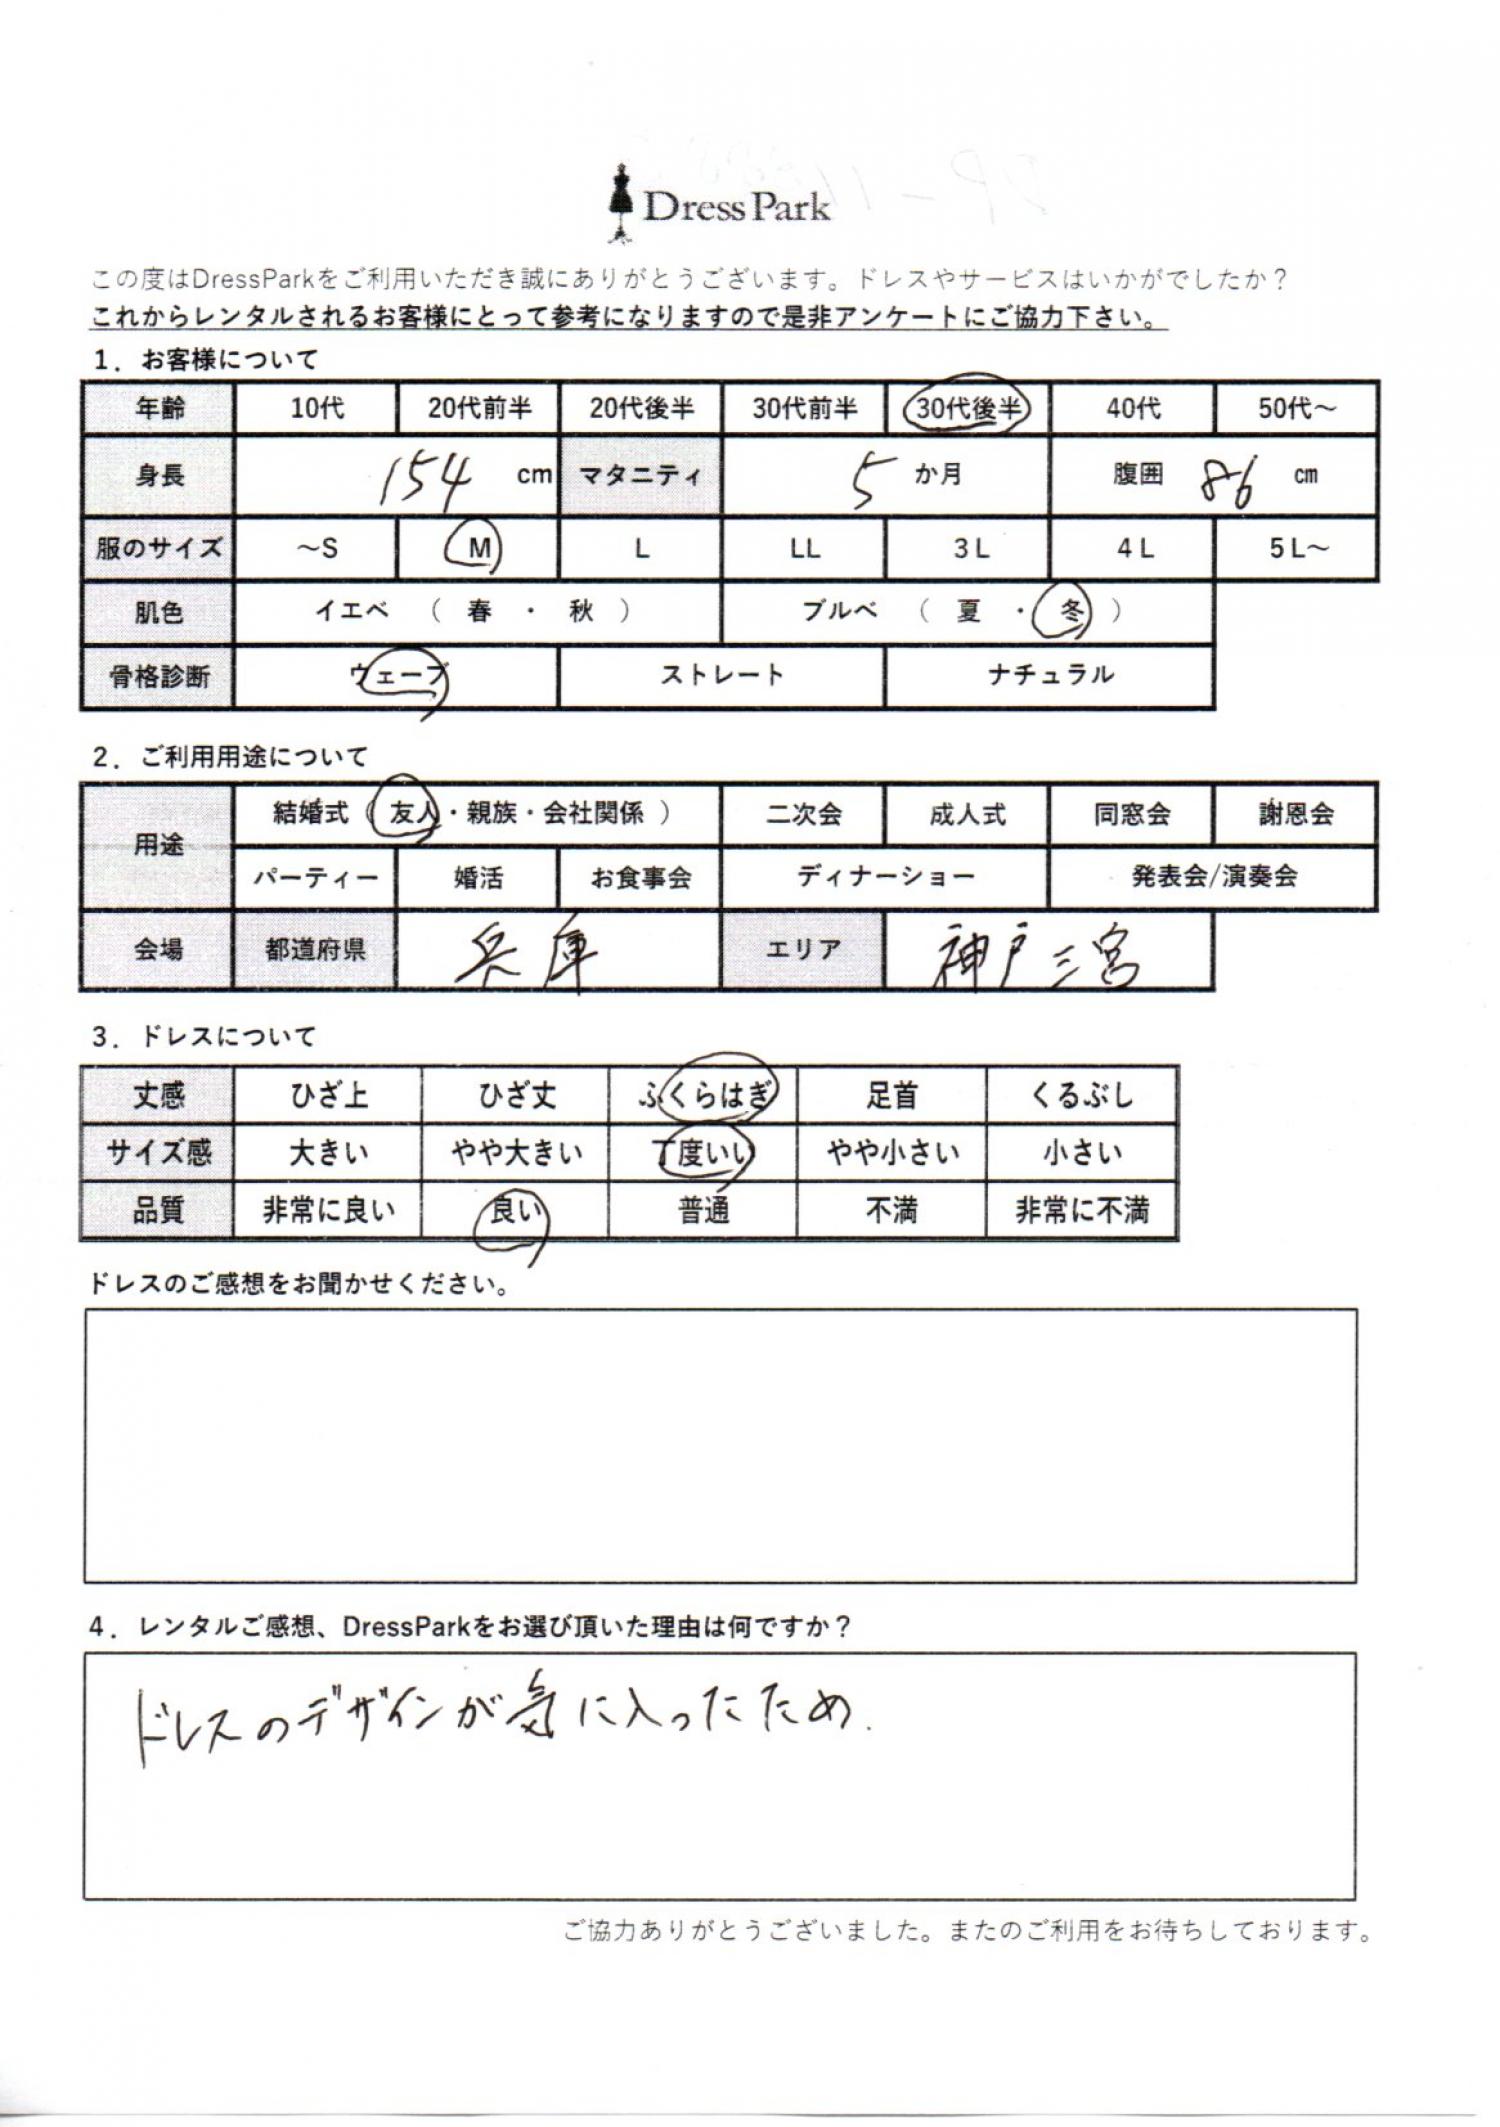 Dress Park
この度はDressParkをご利用いただき誠にありがとうございます。ドレスやサービスはいかがでしたか？
これからレンタルされるお客様にとって参考になりますので是非アンケートにご協力下さい。
1．お客様について
年齢 10代 20代前半 20代後半 30代前半 30代後半 40代 50代～
身長 154 cm マタニティ 5 か月 腹囲 86 cm
服のサイズ ～S M L LL 3L 4L 5L～
肌色 イエベ （ 春 ・ 秋 ） ブルベ （ 夏 ・ 冬 ）
骨格診断 ウェーブ ストレート ナチュラル
2．ご利用用途について
用途 結婚式（ 友人・親族・会社関係 ） 二次会 成人式 同窓会 謝恩会
パーティー 婚活 お食事会 ディナーショー 発表会/演奏会
会場 都道府県 兵庫 エリア 神戸三宮
3．ドレスについて
丈感 ひざ上 ひざ丈 ふくらはぎ 足首 くるぶし
サイズ感 大きい やや大きい 丁度いい やや小さい 小さい
品質 非常に良い 良い 普通 不満 非常に不満
ドレスのご感想をお聞かせください。
4．レンタルご感想、DressParkをお選び頂いた理由は何ですか？
ドレスのデザインが気に入ったため.
ご協力ありがとうございました。またのご利用をお待ちしております。